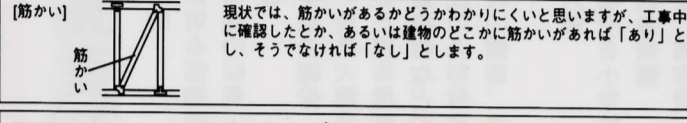 [筋かい]
現状では、筋かいがあるかどうかわかりにくいと思いますが、工事中
に確認したとか、あるいは建物のどこかに筋かいがあれば「あり」と
し、そうでなければ「なし」とします。
筋かい